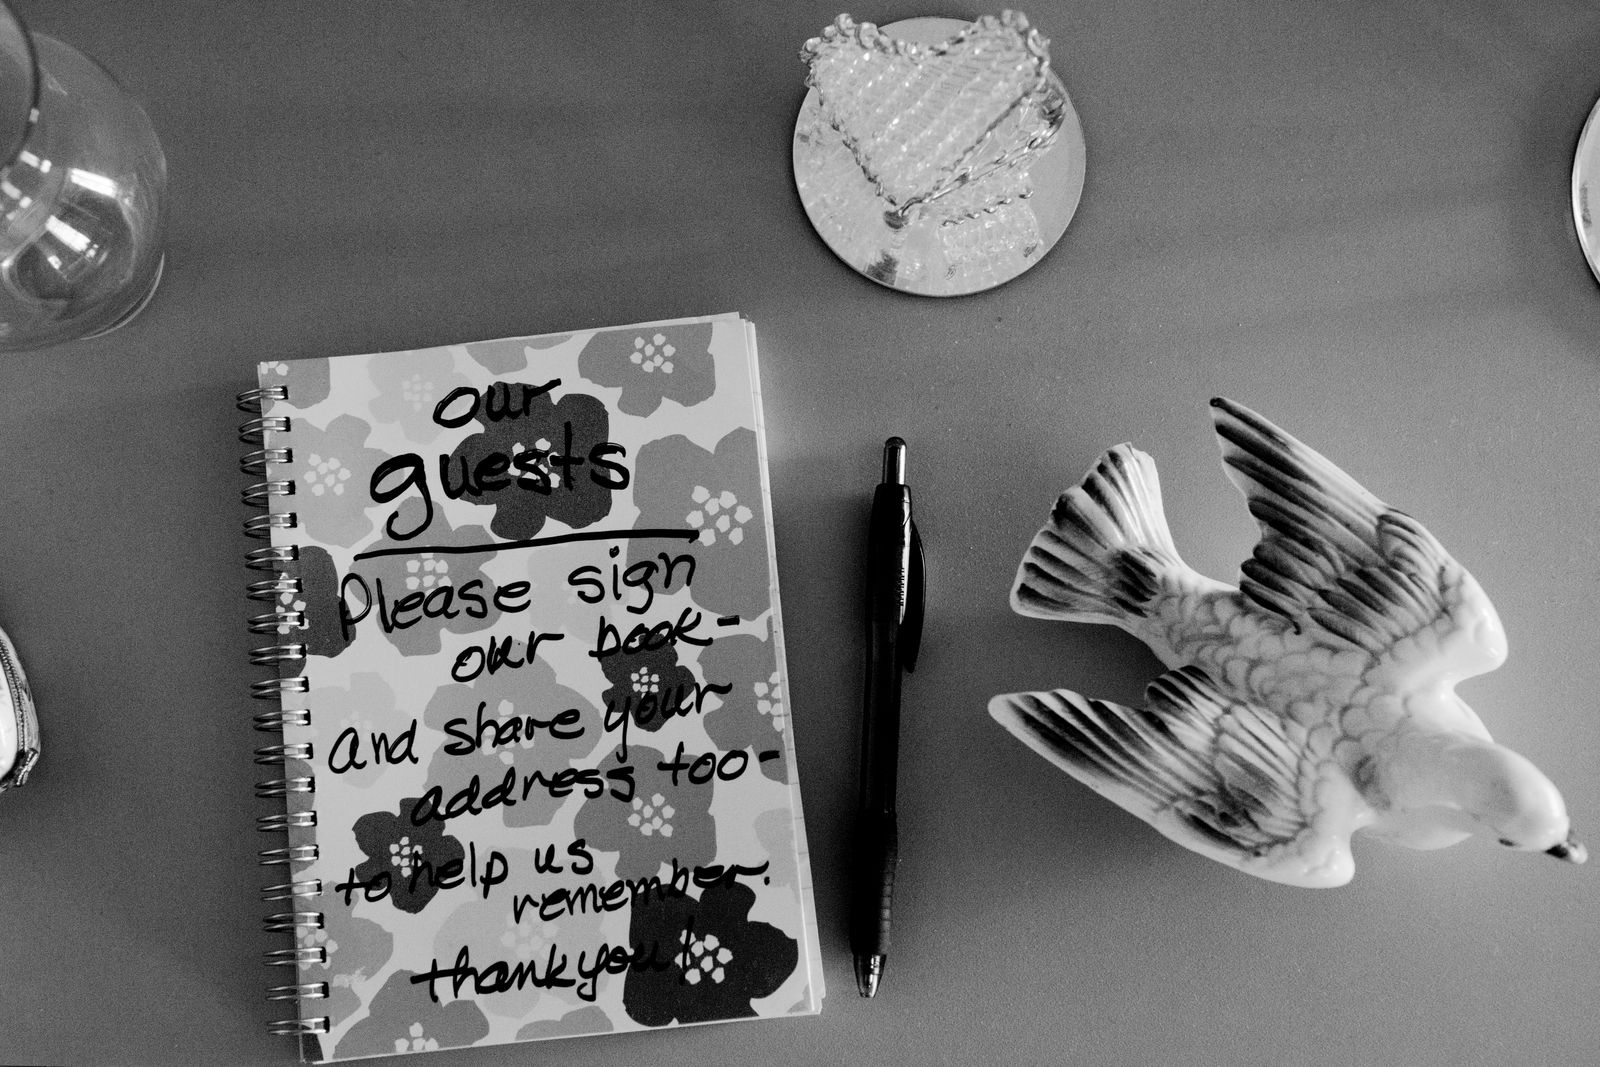 our
guests
Please sign
our book-
and share your
address too-
to help us
remember.
thank you!